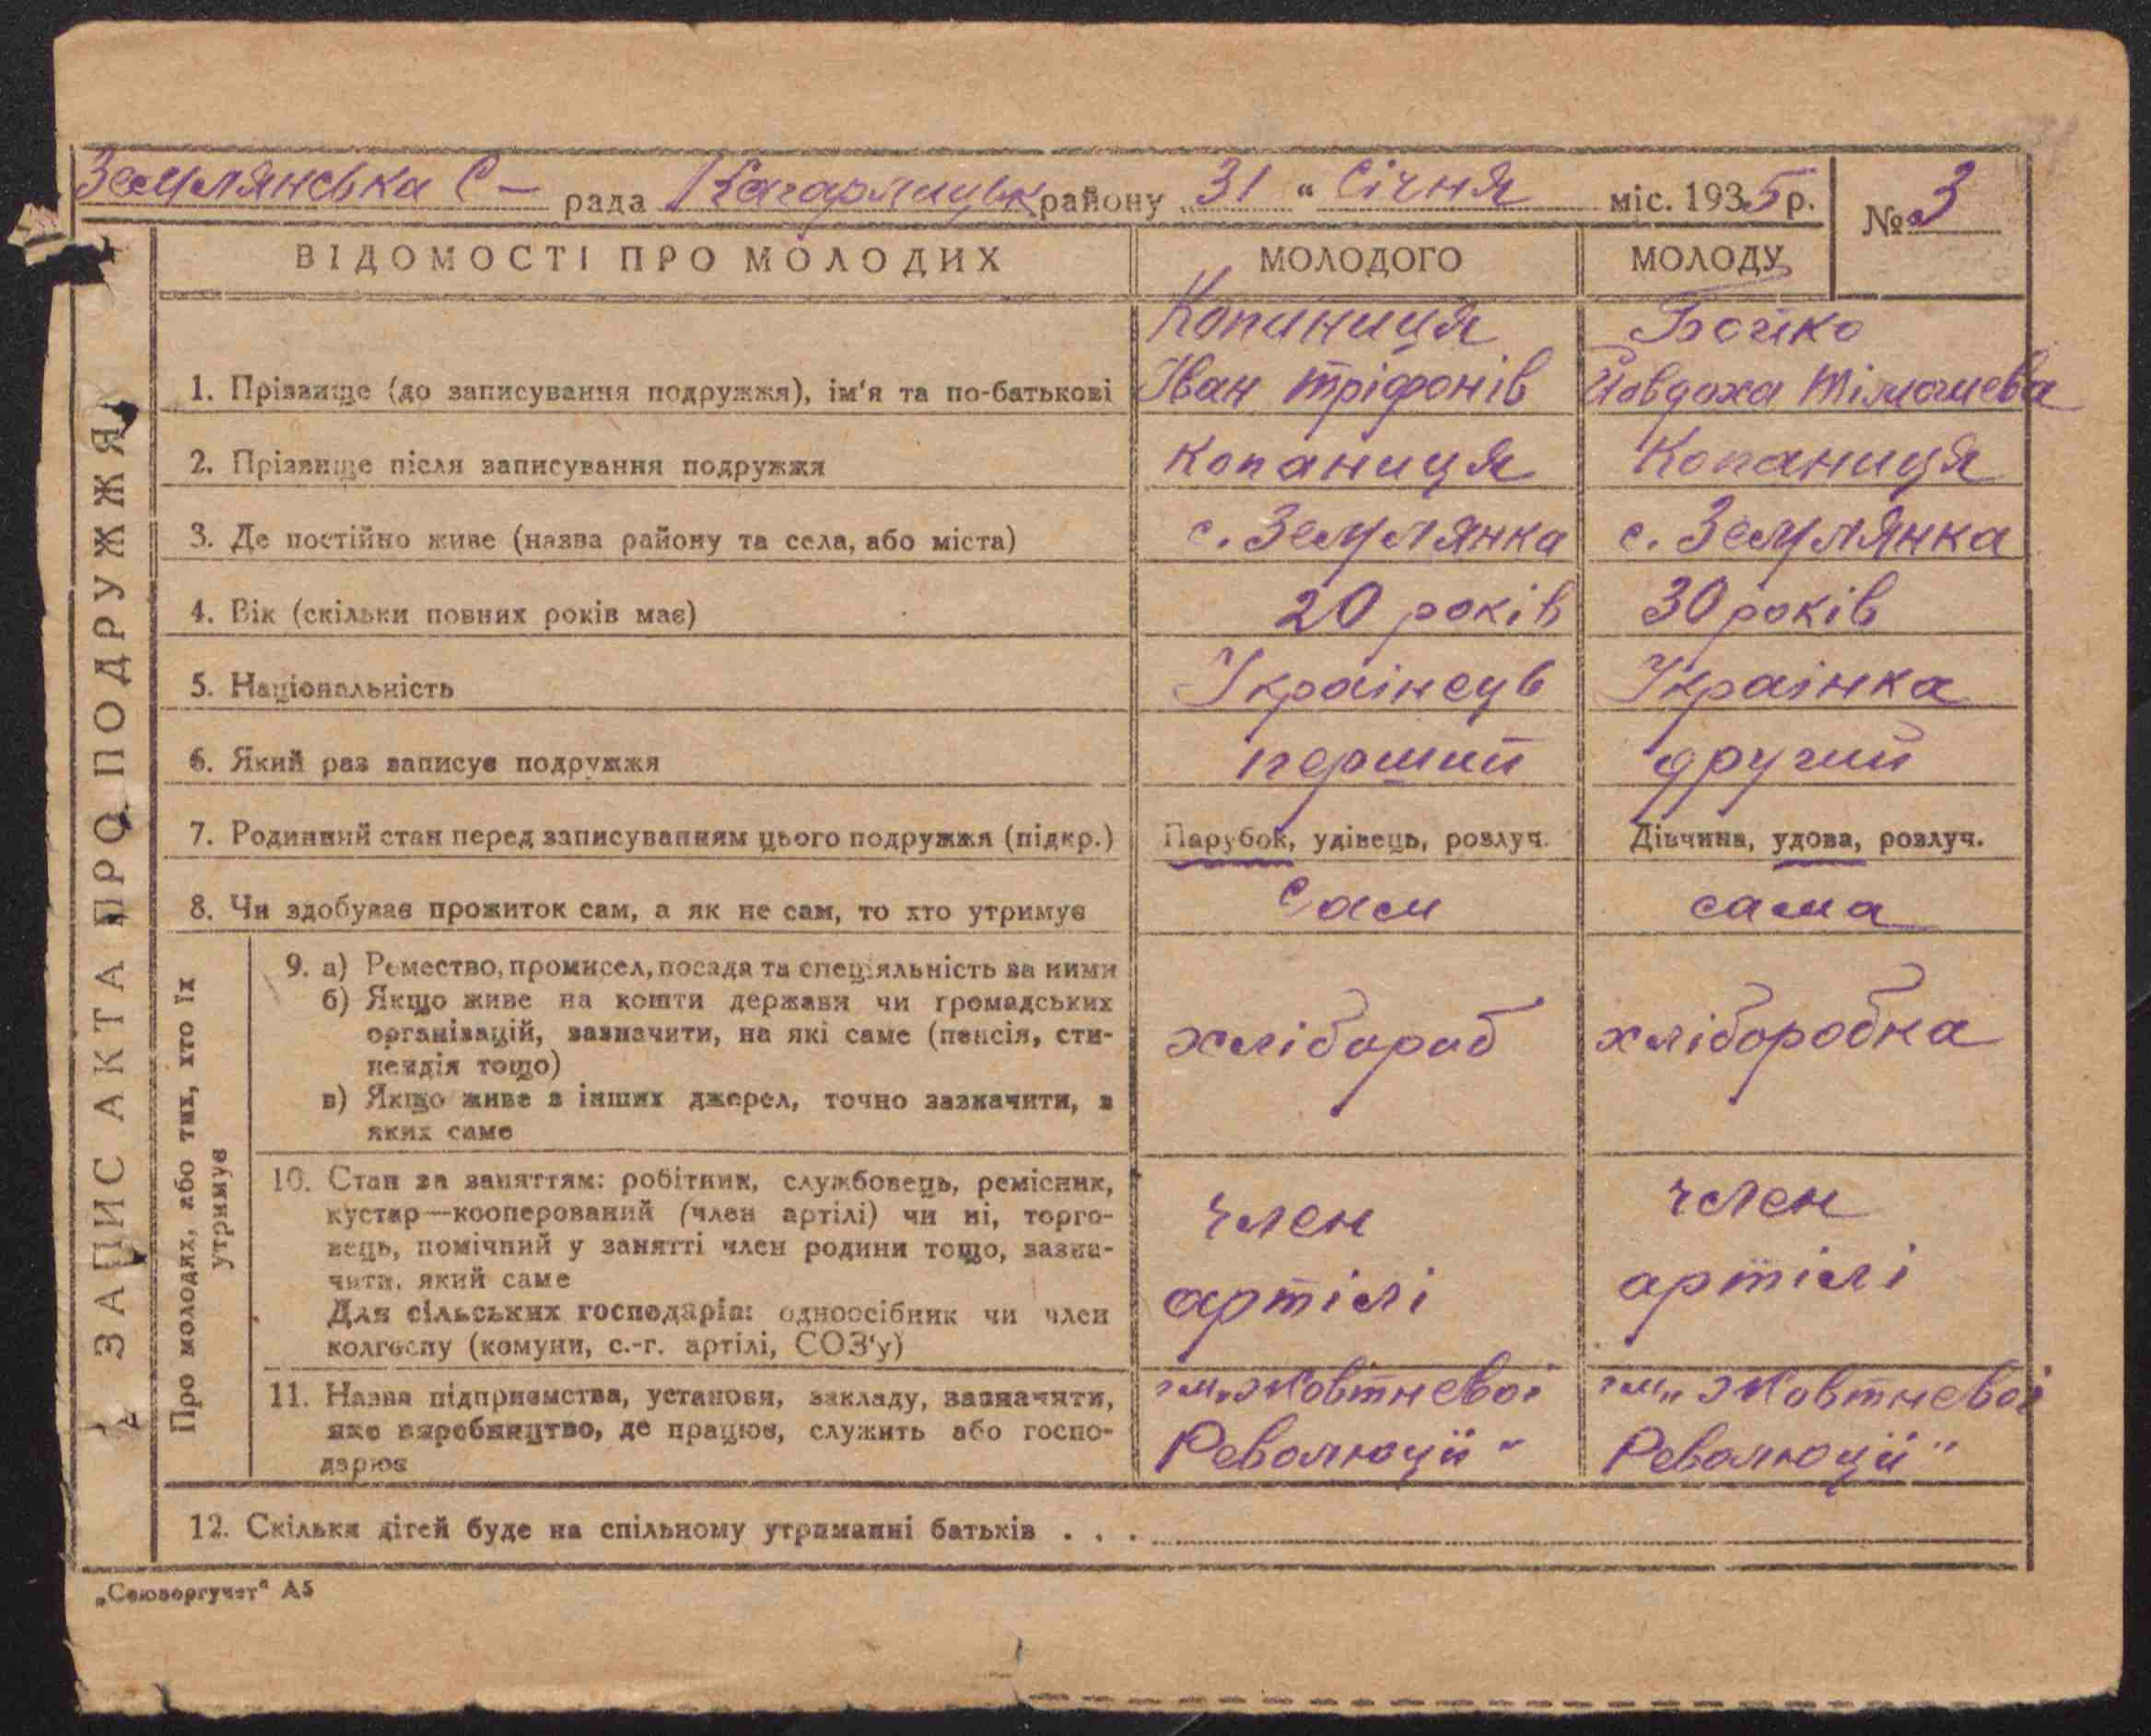 Землянська С – рада Кагарлицьк району „31“ Січня міс. 1935 р. № 3
ВІДОМОСТІ ПРО МОЛОДИХ МОЛОДОГО МОЛОДУ
Копиниця Бойко
1. Прізвище (до записування подружжя), ім'я та по-батькові Іван тріфонів Йовдоха Тімошева
2. Прізвище після записування подружжя Копаниця Копаниця
3. Де постійно живе (назва району та села, або міста) с. Землянка с. Землянка
4. Вік (скільки повних років має) 20 років 30 років
5. Національність Українець Українка
6. Який раз записує подружжя перший другий
7. Родинний стан перед записуванням цього подружжя (підкр.) Парубок, удівець, розлуч. Дівчина, удова, розлуч.
8. Чи здобуває прожиток сам, а як не сам, то хто утримує Сам сама
9. а) Ремество, промисел, посада та спеціяльність за ними
б) Якщо живе на кошти держави чи громадських
організацій, зазначити, на які саме (пенсія, сти-
пендія тощо) хлібороб хліборобка
в) Якщо живе з інших джерел, точно зазначити, з
яких саме
10. Стан за заняттям: робітник, службовець, ремісник,
кустар—кооперований (член артілі) чи ні, торго-
вець, помічний у занятті член родини тощо, зазна-
чити, який саме
Для сільських господарів: одноосібник чи член
колгоспу (комуни, с.-г. артілі, СОЗ'у)
член член
артілі артілі
11. Назва підприємства, установи, закладу, зазначити,
яке виробництво, де працює, служить або госпо-
дарює
ім „Жовтневої ім „Жовтневої
Революції“ Революції“
12. Скільки дітей буде на спільному утриманні батьків . . .
ЗАПИС АКТА ПРО ПОДРУЖЖЯ
Про молодих, або тих, хто їх
утримує
„Союзоргучет“ А5